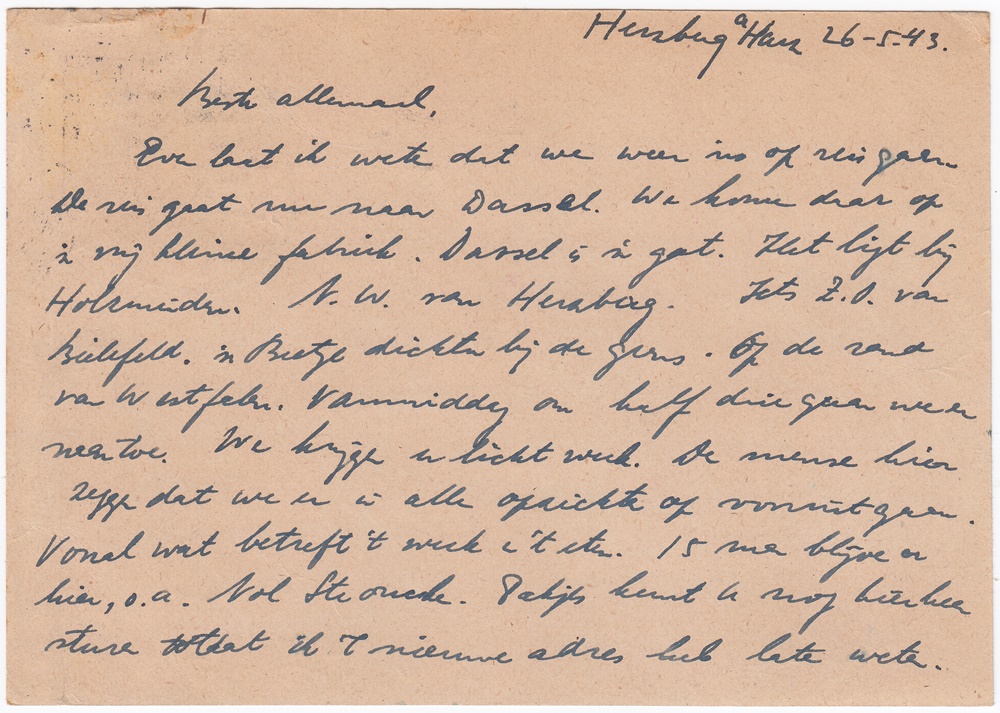 Herzberg a Harz 26-5-43.
Beste allemaal,
Eve laat ik wete dat we weer ins op reis gaan
De reis gaat nu naar Dassel. We kome daar op
'n vrij kleine fabriek. Dassel is 'n gat. Het ligt bij
Holzminden. N.W. van Herzberg. Iets Z.O. van
Bielefeld. 'n Beetje dichter bij de grens. Op de rand
van Westfalen. Vanmiddag om half drie gaan we er
naartoe. We krijge er licht werk. De mense hier
zegge dat we er in alle opzichte op vooruitgaan.
Vooral wat betreft 't werk en 't eten. 15 man blijve er
hier, o.a. Nol. Pakjes kunt u nog hierheen
sture totdat ik 't nieuwe adres heb late weten.